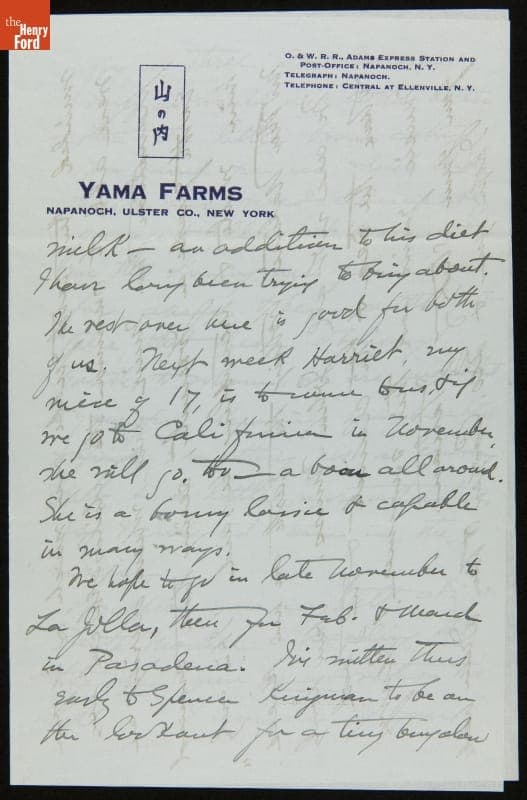 the
Henry
Ford
O. & W. R. R., Adams Express Station and
Post-Office: Napanoch, N. Y.
Telegraph: Napanoch.
Telephone: Central at Ellenville, N. Y.
山
の
内
Yama Farms
Napanoch, Ulster Co., New York
milk — an addition to his diet
I have long been trying to bring about.
The rest over here is good for both
of us. Next week Harriet, my
niece of 17, is to come to us, & if
we go to California in November,
she will go, too — a boon all around.
She is a bonny lassie & capable
in many ways.
We hope to go in late November to
La Jolla, then for Feb. & March
in Pasadena. I've written thus
early to Spencer Kingman to be on
the lookout for a tiny bungalow